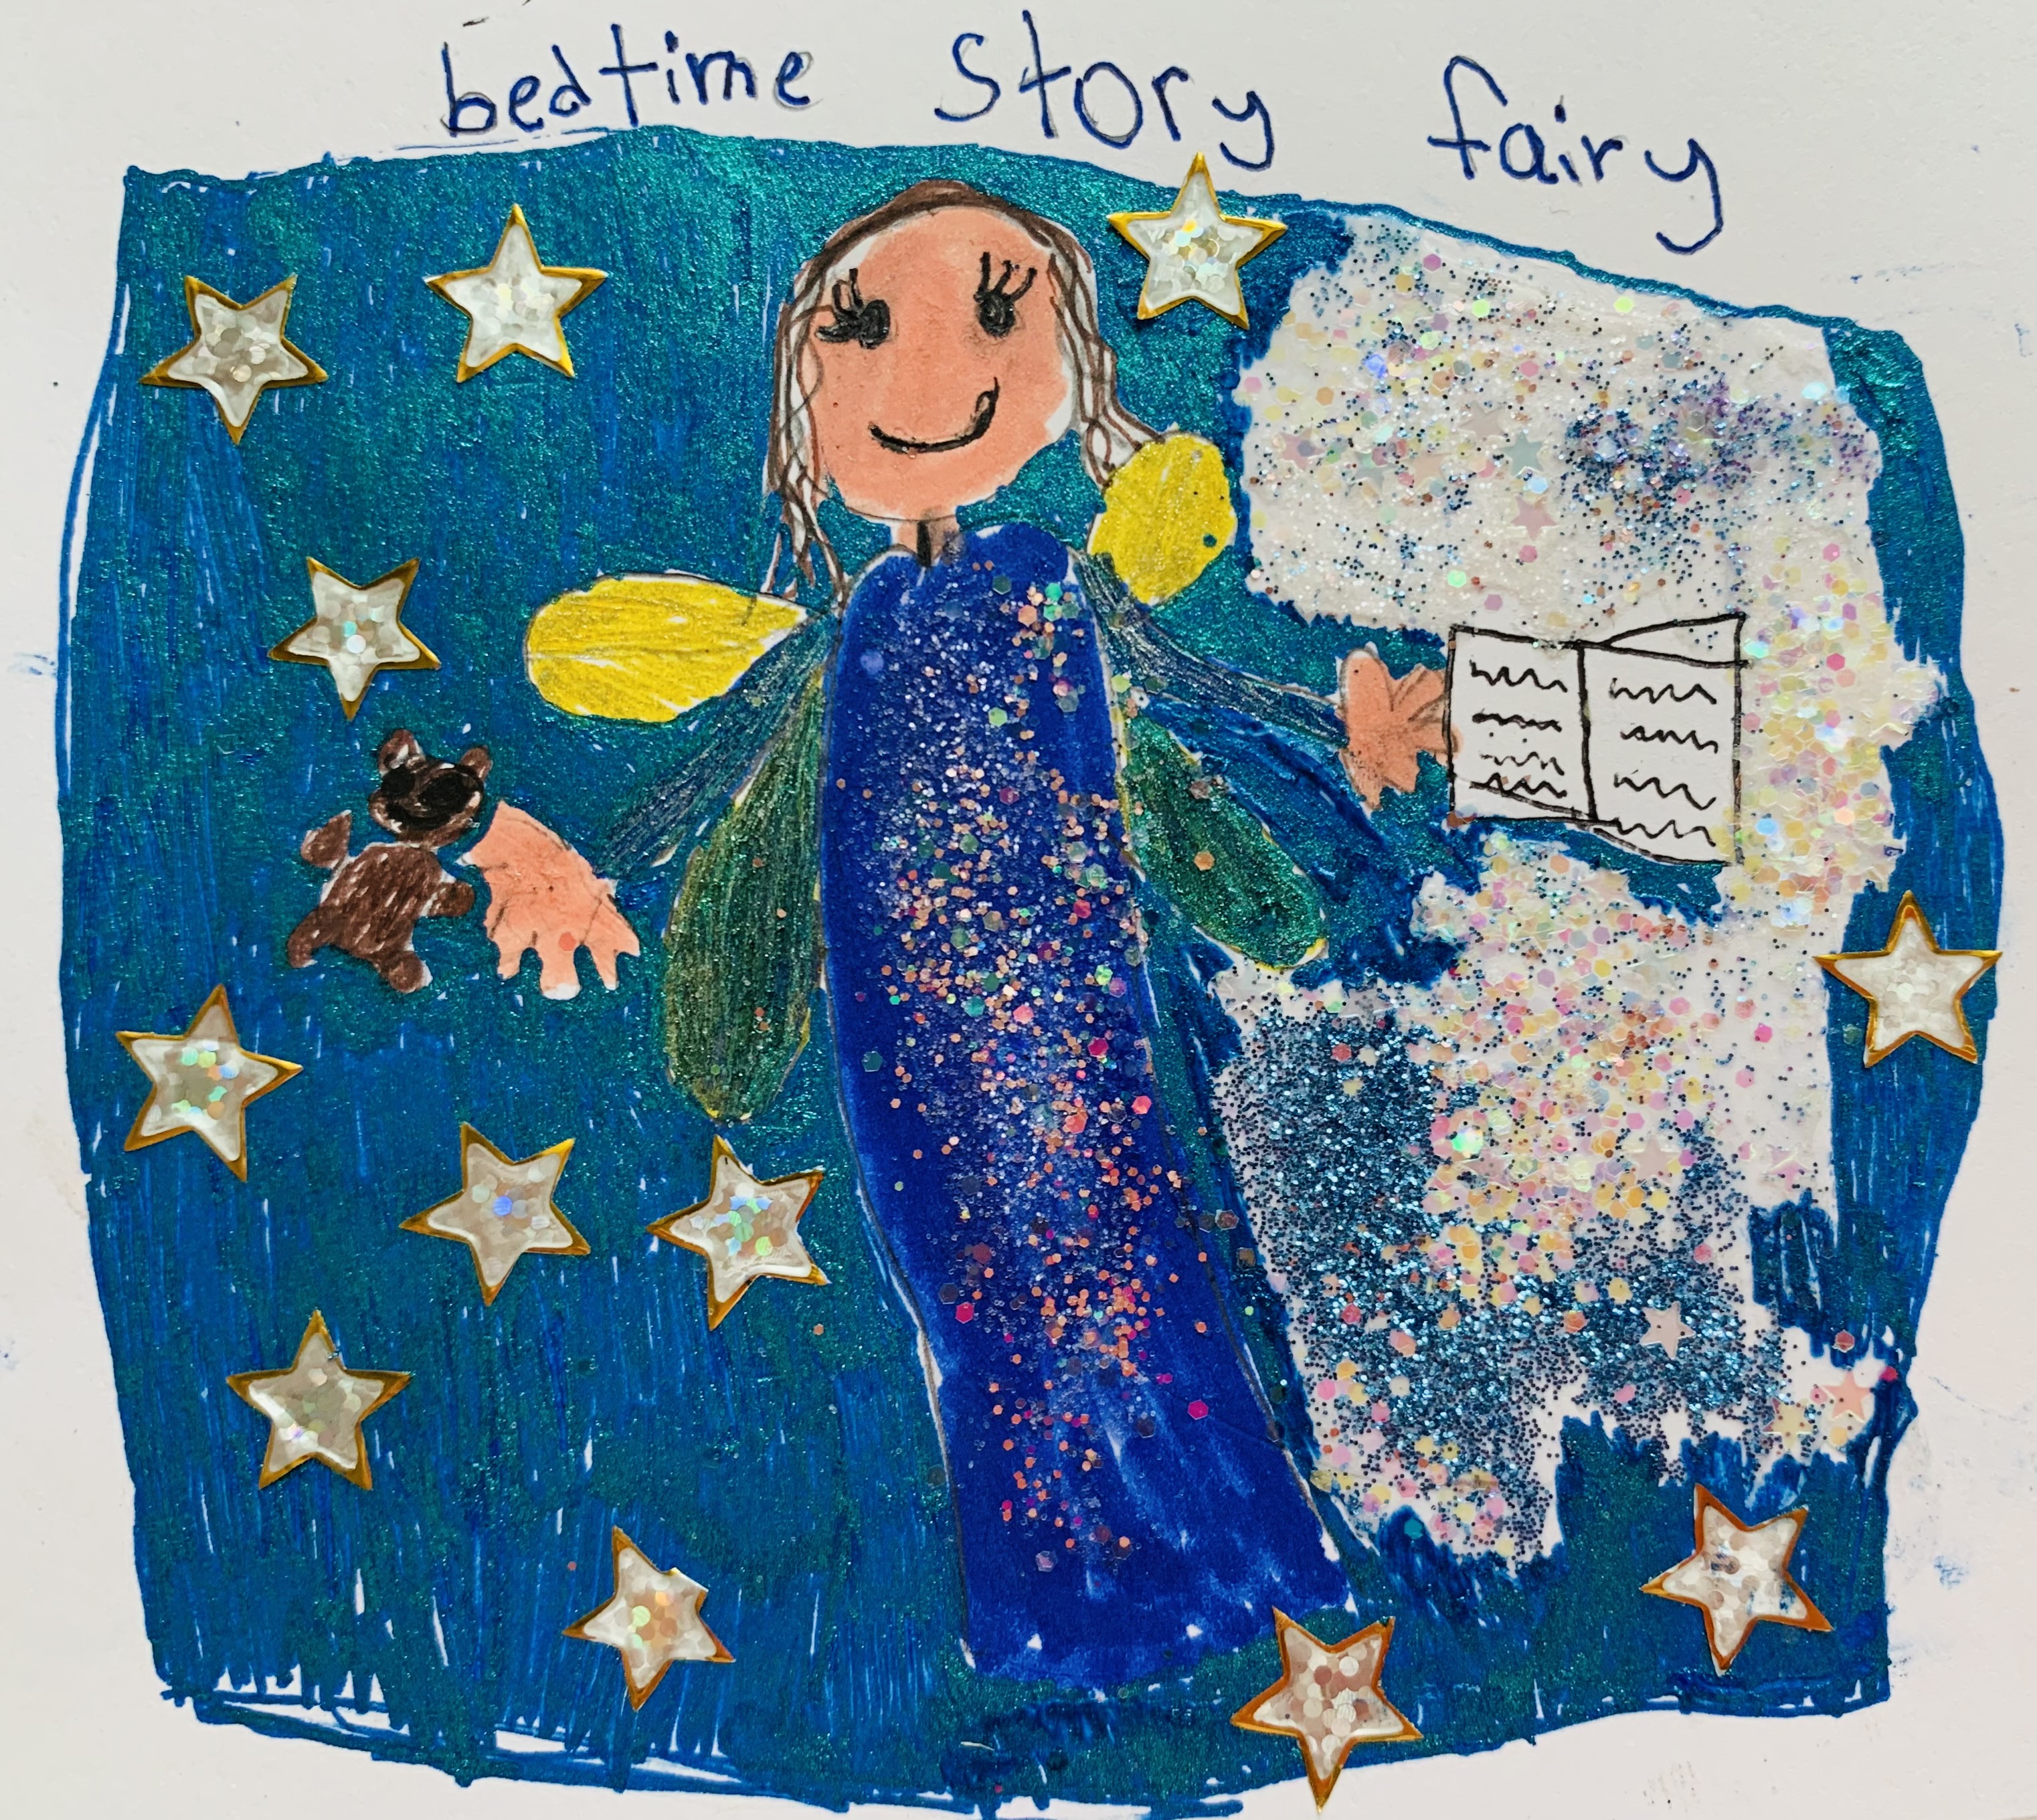 bedtime story fairy